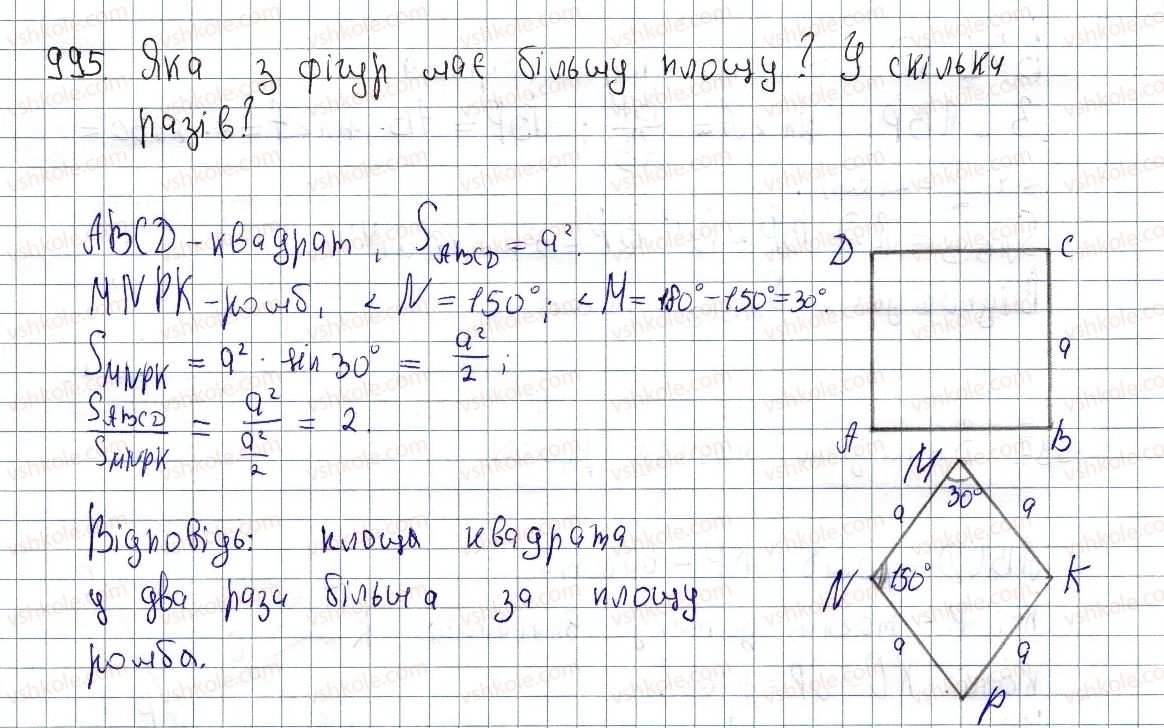 995. Яка з фігур має більшу площу? У скільки
разів?
ABCD - квадрат, S_ABCD = a².
MNPK - ромб, < N = 150°; < M = 180° - 150° = 30°.
S_MNPK = a² · sin 30° = a²/2;
S_ABCD/S_MNPK = a²/(a²/2) = 2.
Відповідь: площа квадрата
у два рази більша за площу
ромба.
D C
a
A B
M
30°
a a
N 150° K
a a
P
vshkole.com